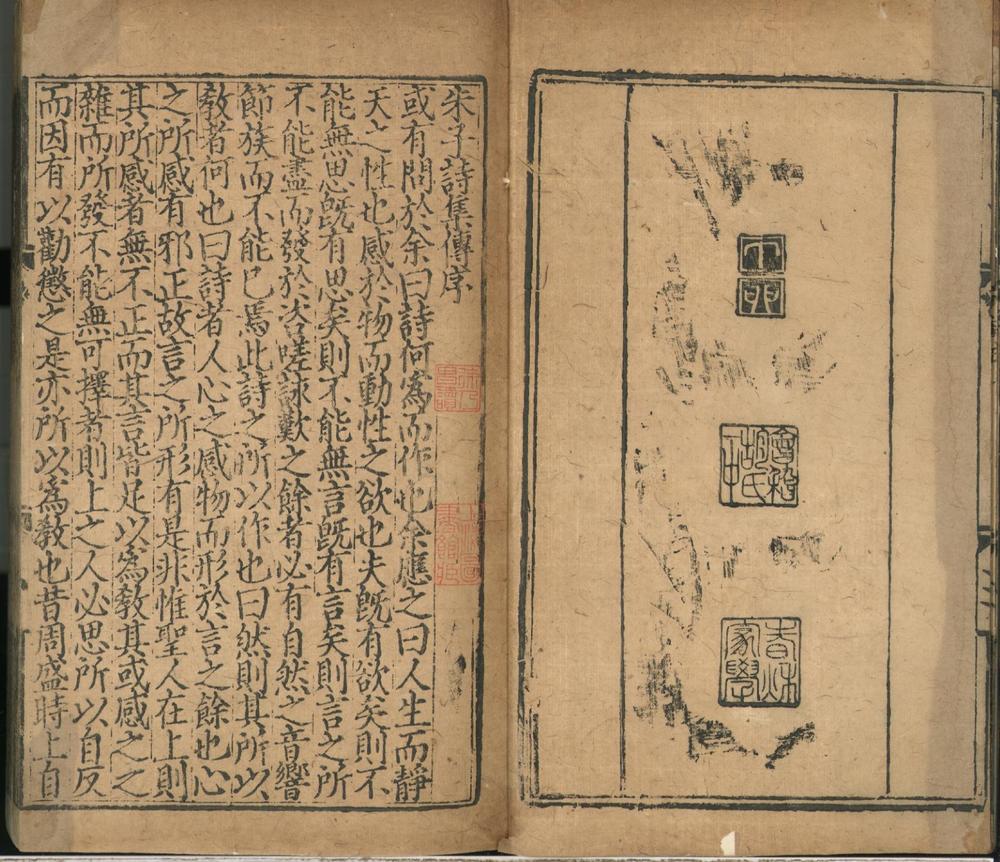 會稽胡氏
春秋家學
朱子詩集傳序
或有問於余曰詩何爲而作也余應之曰人生而靜
天之性也感於物而動性之欲也夫旣有欲矣則不
能無思旣有思矣則不能無言旣有言矣則言之所
不能盡而發於咨嗟詠歎之餘者必有自然之音響
節族而不能已焉此詩之所以作也曰然則其所以
敎者何也曰詩者人心之感物而形於言之餘也心
之所感有邪正故言之所形有是非惟聖人在上則
其所感者無不正而其言皆足以爲敎其或感之之
雜而所發不能無可擇者則上之人必思所以自反
而因有以勸懲之是亦所以爲敎也昔周盛時上自